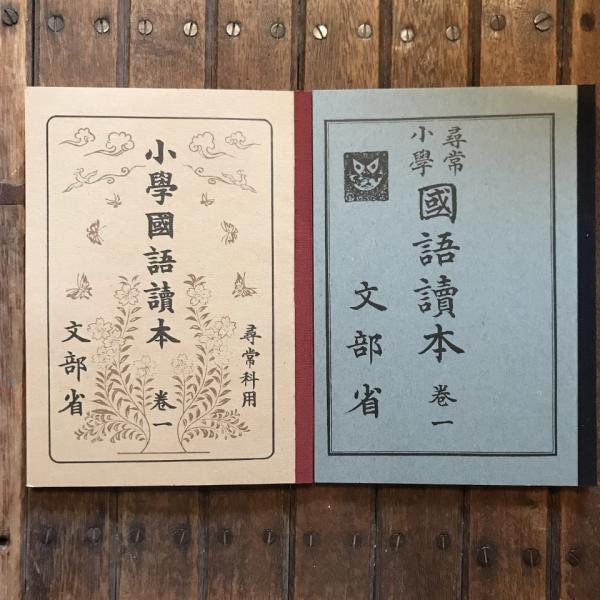 小學國語讀本 卷一
尋常科用
文部省
尋常
小學
國語讀本 卷一
文部省